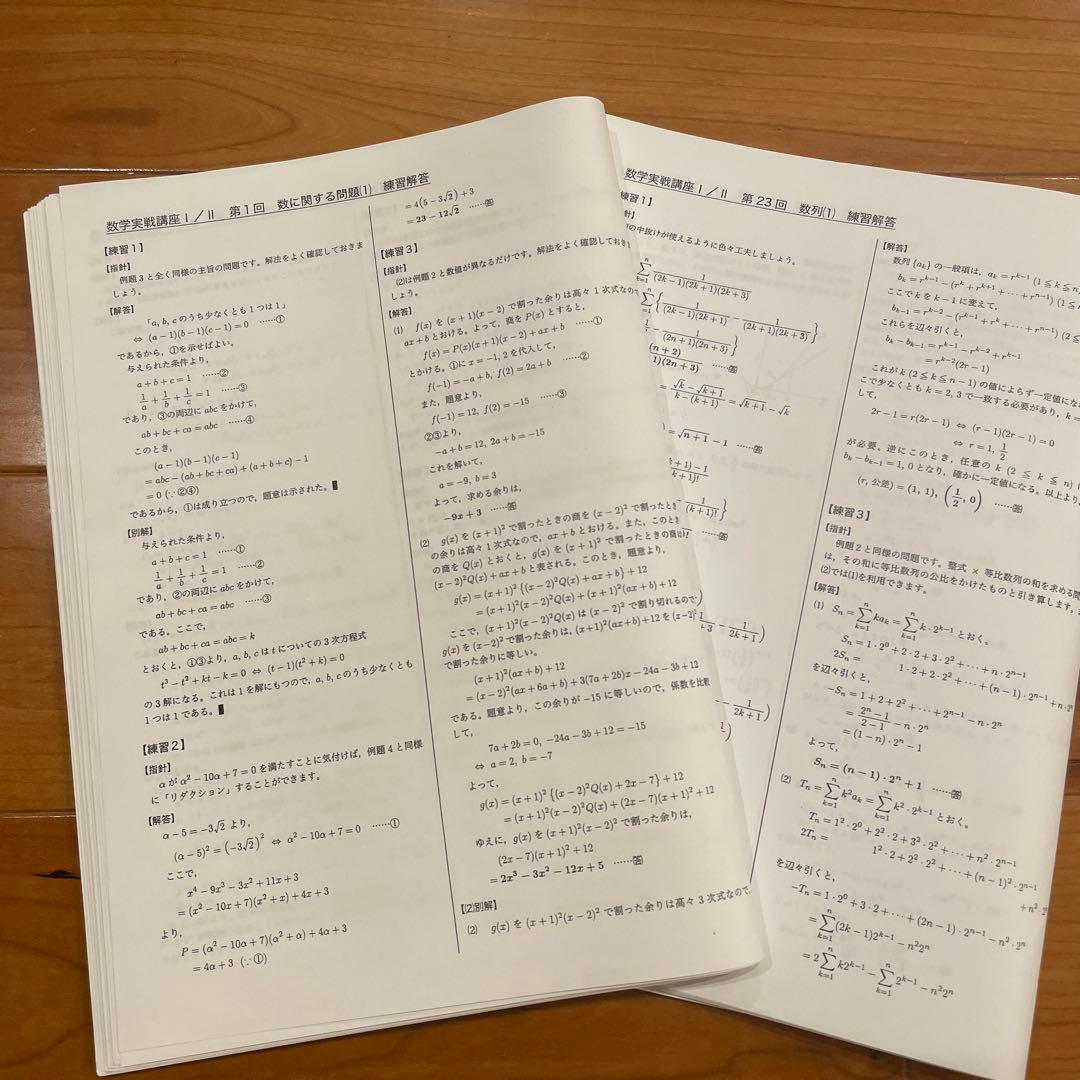 数学実戦講座Ⅰ/Ⅱ 第1回 数に関する問題(1) 練習解答
【練習1】
【指針】
例題3と全く同様の主旨の問題です。解法をよく確認しておきま
しょう。
【解答】
「a, b, cのうち少なくとも1つは1」
⇔ (a−1)(b−1)(c−1)=0 ……①
であるから,①を示せばよい。
与えられた条件より,
a+b+c=1 ……②
1/a+1/b+1/c=1 ……③
であり,③の両辺にabcをかけて,
ab+bc+ca=abc ……④
このとき,
(a−1)(b−1)(c−1)
=abc−(ab+bc+ca)+(a+b+c)−1
=0 (∵②④)
であるから,①は成り立つので,題意は示された。∎
【別解】
与えられた条件より,
a+b+c=1 ……①
1/a+1/b+1/c=1 ……②
であり,②の両辺にabcをかけて,
ab+bc+ca=abc ……③
である。ここで,
ab+bc+ca=abc=k
とおくと,①③より,a, b, cはtについての3次方程式
t³−t²+kt−k=0 ⇔ (t−1)(t²+k)=0
の3解になる。これは1を解にもつので,a, b, cのうち少なくとも
1つは1である。∎
【練習2】
【指針】
αがα²−10α+7=0を満たすことに気付けば,例題4と同様
に「リダクション」することができます。
【解答】
α−5=−3√2より,
(α−5)²=(−3√2)² ⇔ α²−10α+7=0 ……①
ここで,
x⁴−9x³−3x²+11x+3
=(x²−10x+7)(x²+x)+4x+3
より,
P=(α²−10α+7)(α²+α)+4α+3
=4α+3 (∵①)
=4(5−3√2)+3
=23−12√2 ……答
【練習3】
【指針】
(2)は例題2と数値が異なるだけです。解法をよく確認しておき
しょう。
【解答】
(1) f(x)を(x+1)(x−2)で割った余りは高々1次式なの
ax+bとおける。よって,商をP(x)とすると,
f(x)=P(x)(x+1)(x−2)+ax+b ……①
とかける。①にx=−1, 2を代入して,
f(−1)=−a+b, f(2)=2a+b ……②
また,題意より,
f(−1)=12, f(2)=−15 ……③
②③より,
−a+b=12, 2a+b=−15
これを解いて,
a=−9, b=3
よって,求める余りは,
−9x+3 ……答
(2) g(x)を(x+1)²で割ったときの商を(x−2)²で割ったとき
の余りは高々1次式なので,ax+bとおける。また,このとき
の商をQ(x)とおくと,g(x)を(x+1)²で割ったときの商は
(x−2)²Q(x)+ax+bと表される。このとき,題意より,
g(x)=(x+1)²{(x−2)²Q(x)+ax+b}+12
=(x+1)²(x−2)²Q(x)+(x+1)²(ax+b)+12
ここで,(x+1)²(x−2)²Q(x)は(x−2)²で割り切れるので
g(x)を(x−2)²で割った余りは,(x+1)²(ax+b)+12を(x−2)²
で割った余りに等しい。
(x+1)²(ax+b)+12
=(x−2)²(ax+6a+b)+3(7a+2b)x−24a−3b+12
である。題意より,この余りが−15に等しいので,係数を比較
して,
7a+2b=0, −24a−3b+12=−15
⇔ a=2, b=−7
よって,
g(x)=(x+1)²{(x−2)²Q(x)+2x−7}+12
=(x+1)²(x−2)²Q(x)+(2x−7)(x+1)²+12
ゆえに,g(x)を(x+1)²(x−2)²で割った余りは,
(2x−7)(x+1)²+12
=2x³−3x²−12x+5 ……答
【(2)別解】
(2) g(x)を(x+1)²(x−2)²で割った余りは高々3次式なので,
数学実戦講座Ⅰ/Ⅱ 第23回 数列(1) 練習解答
練習1】
指針】
の中抜けが使えるように色々工夫しましょう。
∑_{k=1}^{n} 1/((2k−1)(2k+1)(2k+3))
∑_{k=1}^{n}{1/((2k−1)(2k+1))−1/((2k+1)(2k+3))}
−1/((2n+1)(2n+3))}
(n+2)
1)(2n+3) ……答
=(√k−√(k+1))/(k−(k+1))=√(k+1)−√k
)=√(n+1)−1 ……答
(k+1)−1
(k+1)!
1/(k+1)!}
……答
+3−1/(2k+1))
−1/(2k+1)}
【解答】
数列{aₖ}の一般項は,aₖ=r^{k−1} (1≦k≦n
bₖ=r^{k−1}−(r^k+r^{k+1}+⋯+r^{n−1}) (1≦
ここでkをk−1に変えて,
b_{k−1}=r^{k−2}−(r^{k−1}+r^k+⋯+r^{n−1}) (2≦
これらを辺々引くと,
bₖ−b_{k−1}=r^{k−1}−r^{k−2}+r^{k−1}
=r^{k−2}(2r−1)
これがk (2≦k≦n−1)の値によらず一定値にな
こで少なくともk=2, 3で一致する必要があり,k=
して,
2r−1=r(2r−1) ⇔ (r−1)(2r−1)=0
⇔ r=1, 1/2
が必要。逆にこのとき,任意のk (2≦k≦n)
bₖ−b_{k−1}=1, 0となり,確かに一定値になる。以上より,
(r, 公差)=(1, 1), (1/2, 0) ……答
【練習3】
【指針】
例題2と同様の問題です。整式×等比数列の和を求める問
は,その和に等比数列の公比をかけたものと引き算します。
(2)では(1)を利用できます。
【解答】
(1) Sₙ=∑_{k=1}^{n} kaₖ=∑_{k=1}^{n} k·2^{k−1}とおく。
Sₙ=1·2⁰+2·2+3·2²+⋯+n·2^{n−1}
2Sₙ= 1·2+2·2²+⋯+(n−1)·2^{n−1}+n·2ⁿ
を辺々引くと,
−Sₙ=1+2+2²+⋯+2^{n−1}−n·2ⁿ
=(2ⁿ−1)/(2−1)−n·2ⁿ
=(1−n)·2ⁿ−1
よって,
Sₙ=(n−1)·2ⁿ+1 ……答
(2) Tₙ=∑_{k=1}^{n} k²aₖ=∑_{k=1}^{n} k²·2^{k−1}とおく。
Tₙ=1²·2⁰+2²·2+3²·2²+⋯+n²·2^{n−1}
2Tₙ= 1²·2+2²·2²+⋯+(n−1)²·2^{n−1}
+n²·2ⁿ
を辺々引くと,
−Tₙ=1·2⁰+3·2+⋯+(2n−1)·2^{n−1}−n²·2ⁿ
=∑_{k=1}^{n}(2k−1)2^{k−1}−n²2ⁿ
=2∑_{k=1}^{n} k2^{k−1}−∑_{k=1}^{n} 2^{k−1}−n²2ⁿ